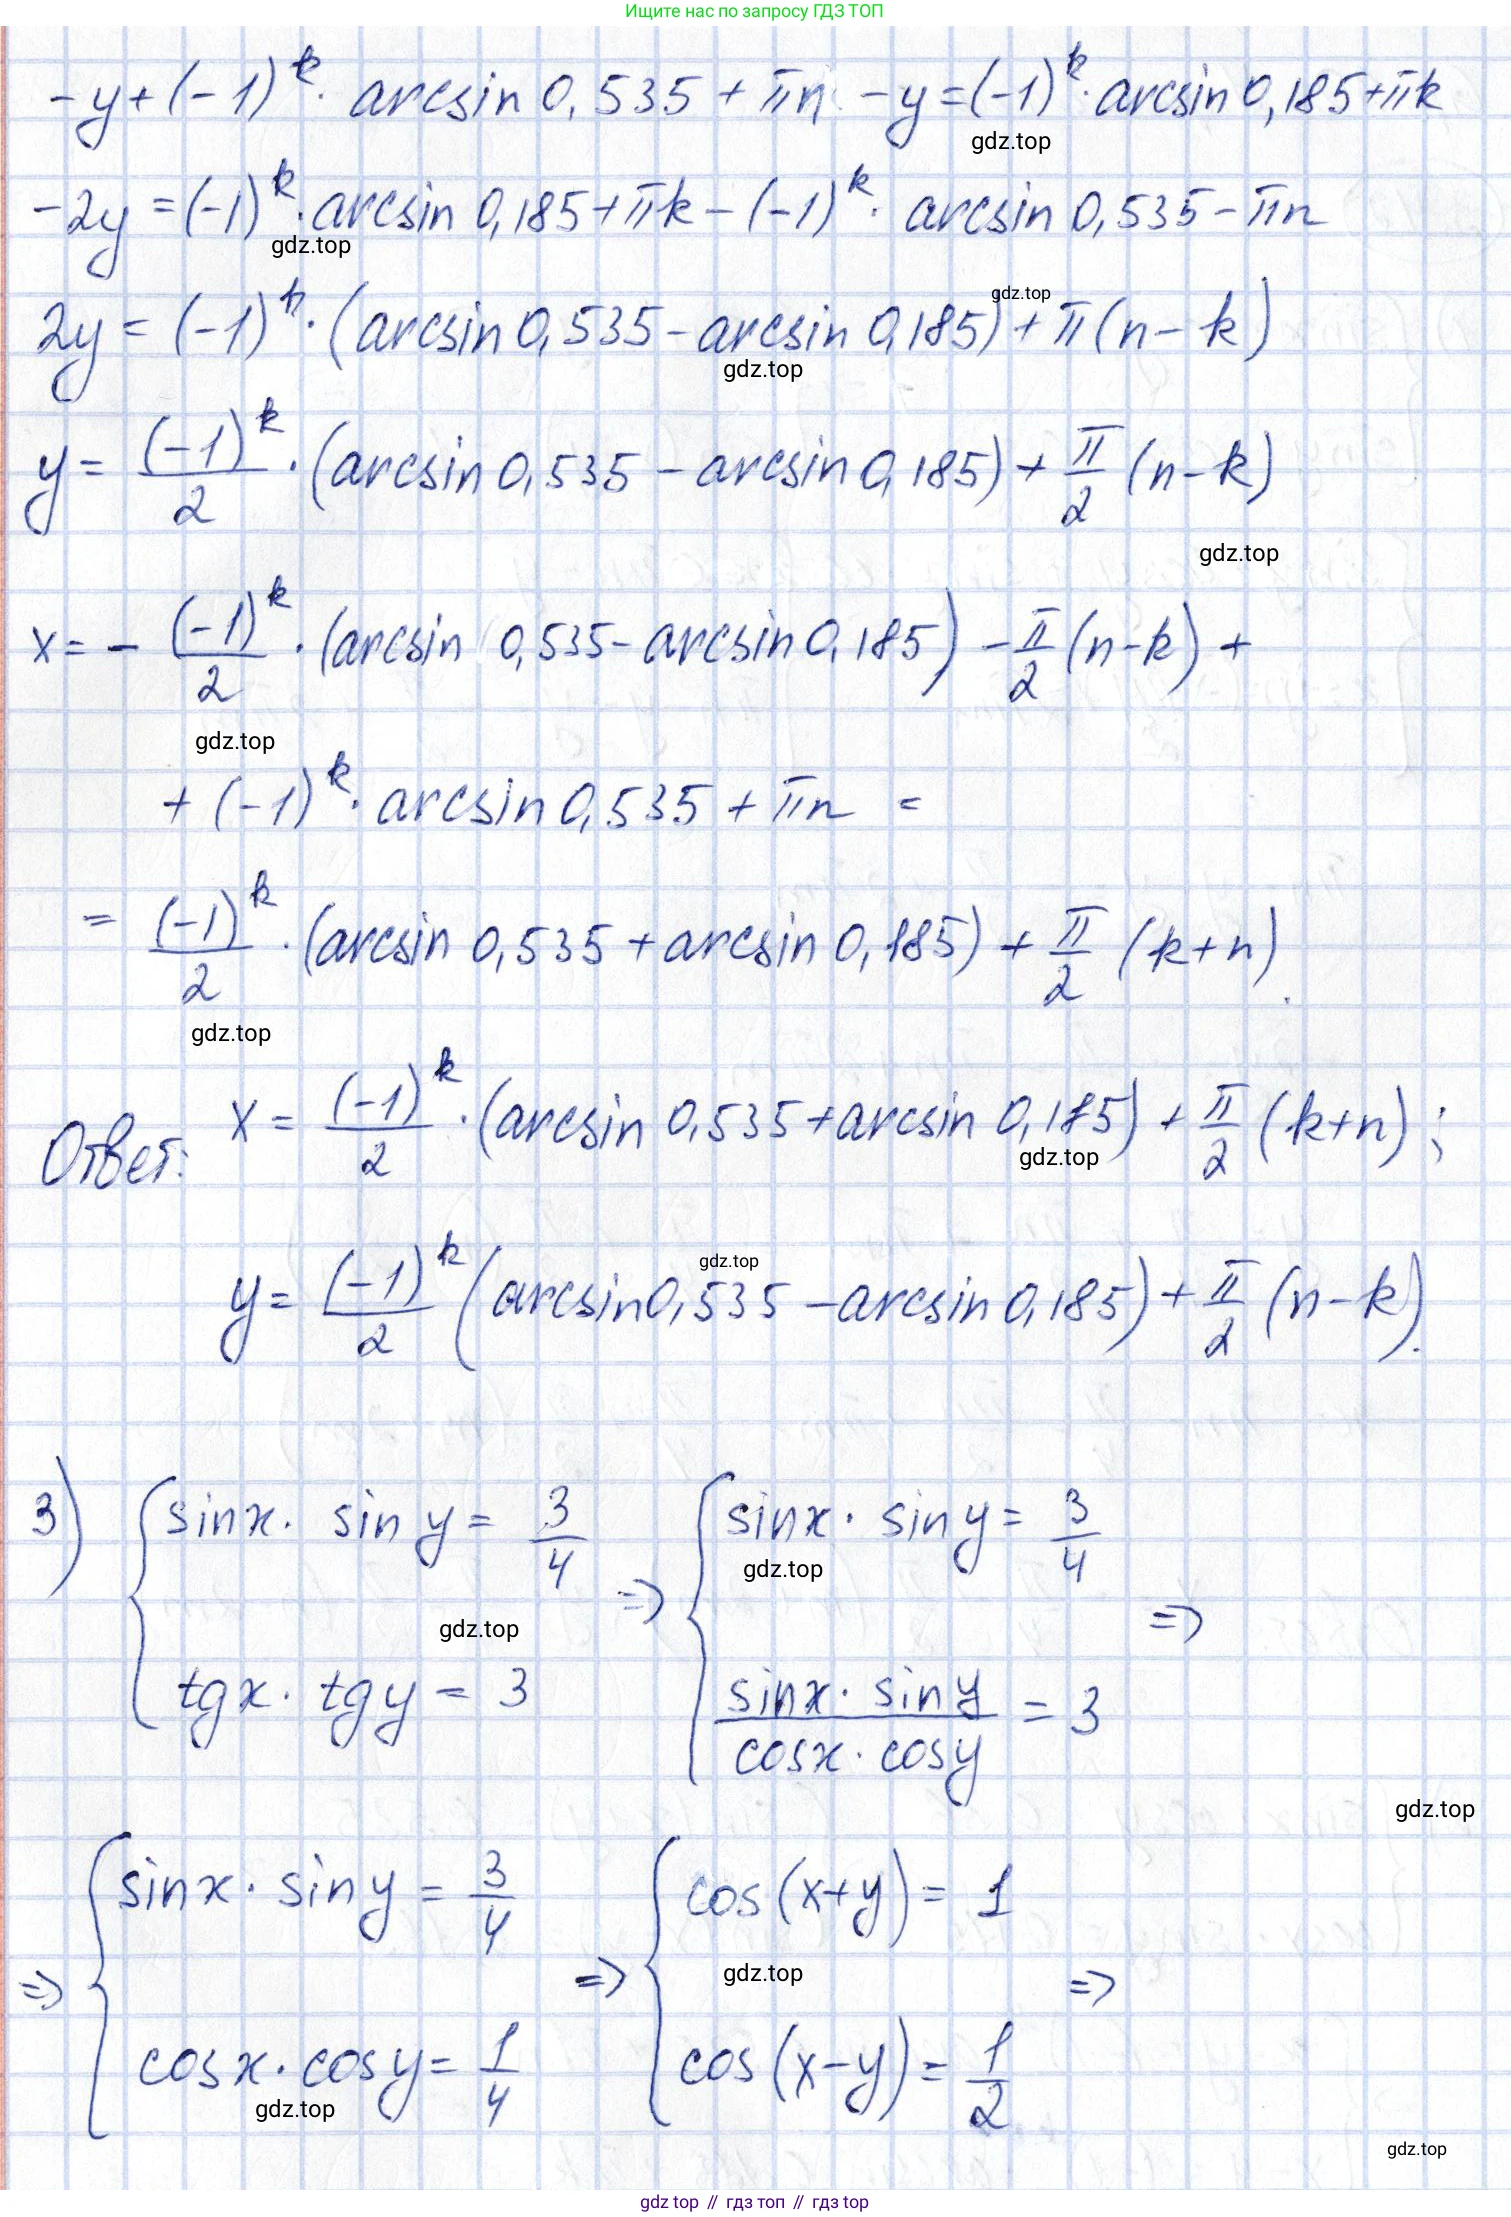 Ищите нас по запросу ГДЗ ТОП
-y+(-1)^k · arcsin 0,535 + πn - y = (-1)^k · arcsin 0,185 + πk
gdz.top
-2y = (-1)^k · arcsin 0,185 + πk - (-1)^k · arcsin 0,535 - πn
gdz.top
gdz.top
2y = (-1)^k · (arcsin 0,535 - arcsin 0,185) + π(n - k)
gdz.top
y = (-1)^k/2 · (arcsin 0,535 - arcsin 0,185) + π/2 (n - k)
gdz.top
x = - (-1)^k/2 · (arcsin 0,535 - arcsin 0,185) - π/2 (n - k) +
gdz.top
+ (-1)^k · arcsin 0,535 + πn =
= (-1)^k/2 · (arcsin 0,535 + arcsin 0,185) + π/2 (k + n).
gdz.top
Ответ: x = (-1)^k/2 · (arcsin 0,535 + arcsin 0,185) + π/2 (k + n);
gdz.top
gdz.top
y = (-1)^k/2 (arcsin 0,535 - arcsin 0,185) + π/2 (n - k).
3) { sin x · sin y = 3/4 => { sin x · sin y = 3/4 =>
gdz.top
gdz.top
tg x · tg y = 3 sin x · sin y / cos x · cos y = 3
gdz.top
=> { sin x · sin y = 3/4 => { cos (x + y) = 1 =>
gdz.top
cos x · cos y = 1/4 cos (x - y) = 1/2
gdz.top
gdz.top
gdz top // гдз топ // гдз top